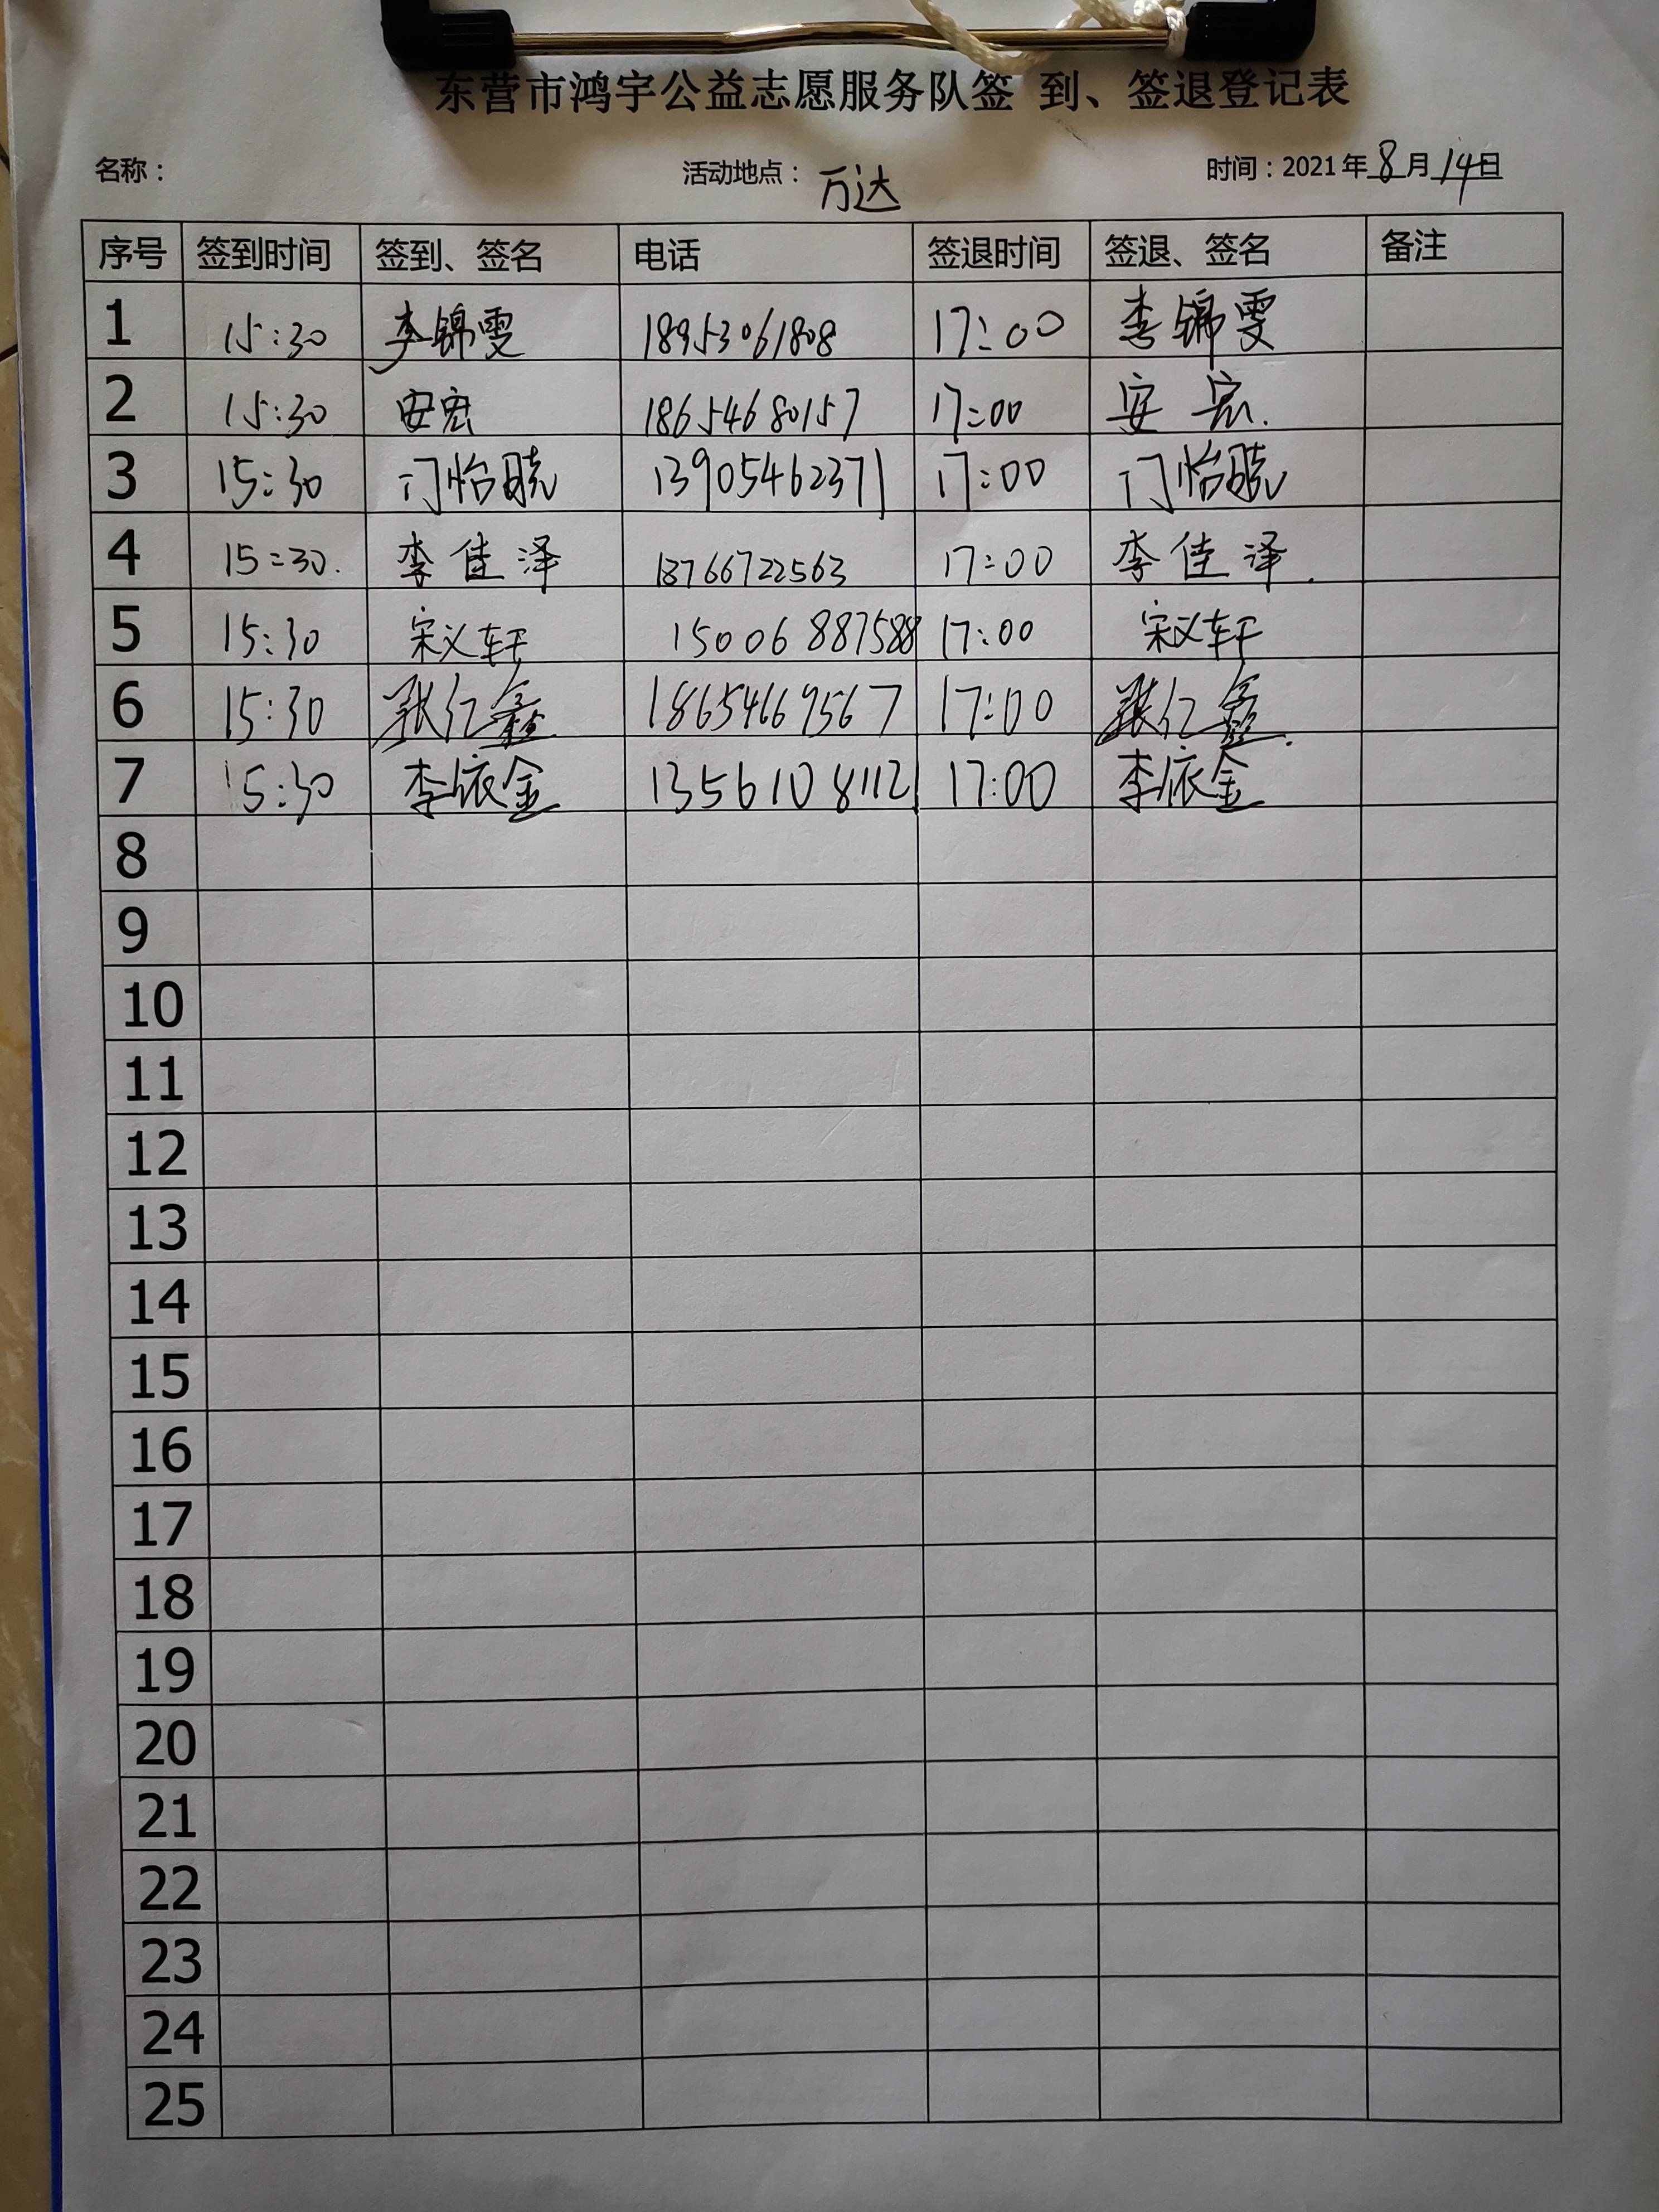 东营市鸿宇公益志愿服务队签 到、签退登记表
名称： 活动地点：万达 时间：2021年8月14日
序号 签到时间 签到、签名 电话 签退时间 签退、签名 备注
1 15:30 李锦雯 18953061808 17:00 李锦雯
2 15:30 安宏 18654680157 17:00 安宏.
3 15:30 门怡晓 13905462371 17:00 门怡晓
4 15:30. 李佳泽 18766722563 17:00 李佳泽.
5 15:30 宋义轩 15006887588 17:00 宋义轩
6 15:30 张仁鑫 18654669567 17:00 张仁鑫.
7 15:30 李依金 13561081121 17:00 李依金
8
9
10
11
12
13
14
15
16
17
18
19
20
21
22
23
24
25